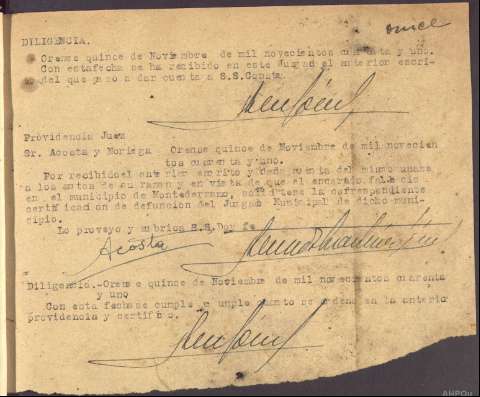 once
DILIGENCIA.
Orense quince de Noviembre de mil novecientos cuarenta y uno.
Con estafecha se ha recibido en este Juzgad el anterior escri-
del que paso a dar cuenta a S.S.Consta.
Providencia Juez
Sr. Acosta y Noriega Orense quince de Noviembre de mil novecien
tos cuarenta y uno.
Por recibidoel anterior escrito y dada cuenta del mismo unase
a los autos de su razon y en vista de que el encartado fallecio
en el municipio de Montederramo, solicitese la correspondiente
certificacion de defuncion del Juzgado Municipal de dicho muni-
cipio.
Lo proveyo y rubrica S.S.Doy fe
Acosta
Diligencia.-Orense quince de Noviembre de mil novecientos cuarenta
y uno
Con esta fechase cumple cuanto se ordena en la anterio
providencia y certifico.
AHPOu